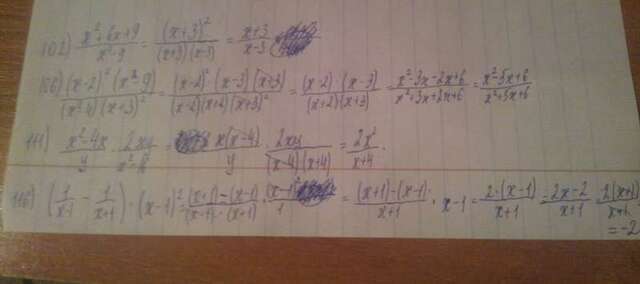 102) (x²+6x+9)/(x²-9) = (x+3)²/((x+3)(x-3)) = (x+3)/(x-3)
106) ((x-2)²(x²-9))/((x²-4)(x+3)²) = ((x-2)²(x-3)(x+3))/((x-2)(x+2)(x+3)²) = ((x-2)(x-3))/((x+2)(x+3)) = (x²-3x-2x+6)/(x²+3x+2x+6) = (x²-5x+6)/(x²+5x+6)
111) (x²-4x)/y · 2xy/(x²-16) = x(x-4)/y · 2xy/((x-4)(x+4)) = 2x²/(x+4)
116) (1/(x-1) - 1/(x+1)) · (x-1)² = ((x+1)-(x-1))/((x-1)·(x+1)) · (x-1)²/1 = ((x+1)-(x-1))/(x+1) · x-1 = 2·(x-1)/(x+1) = (2x-2)/(x+1)
= -2